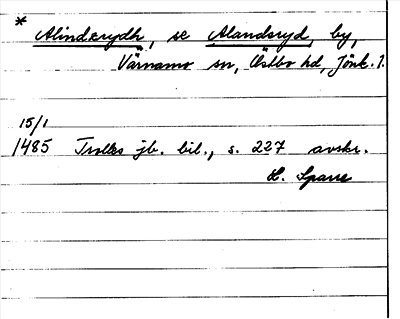 * Alinderydh, se Alandsryd, by,
Värnamo sn, Östbo hd, Jönk. l.
15/1
1485 Trolles jb. bil., s. 227 avskr.
H. Sparre